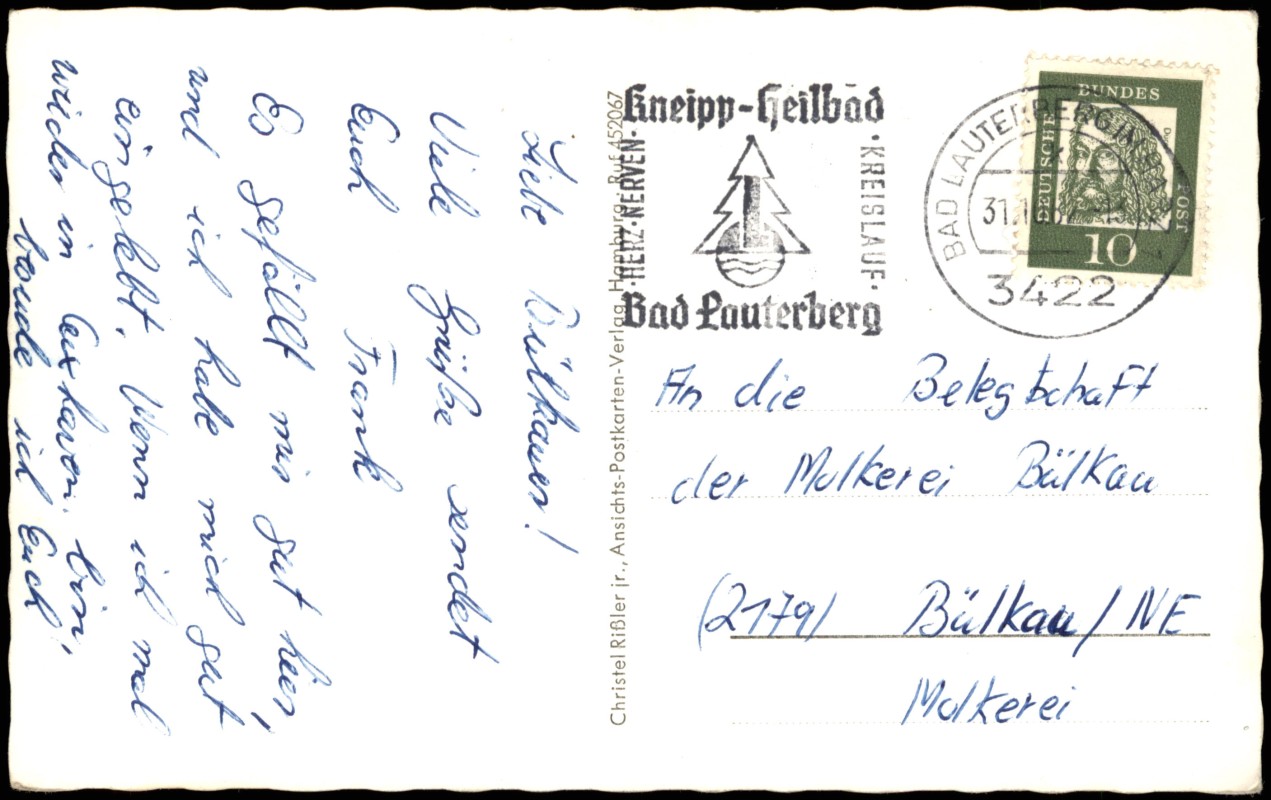 Liebe Bülkauer!
Viele Grüße sendet
Euch Frank
Es gefällt mir gut hier,
und ich habe mich gut
eingelebt. Wenn ich mal
wieder in Cuxhaven bin,
ich Euch
Christel Rißler jr., Ansichts-Postkarten-Verlag, Hamburg · Ruf 452067
Kneipp-Heilbad
·HERZ·NERVEN·
·KREISLAUF·
Bad Lauterberg
BAD LAUTERBERG IM HARZ
31.
3422
DEUTSCHE
BUNDES
POST
10
An die Belegschaft
der Molkerei Bülkau
(2179) Bülkau/NE
Molkerei